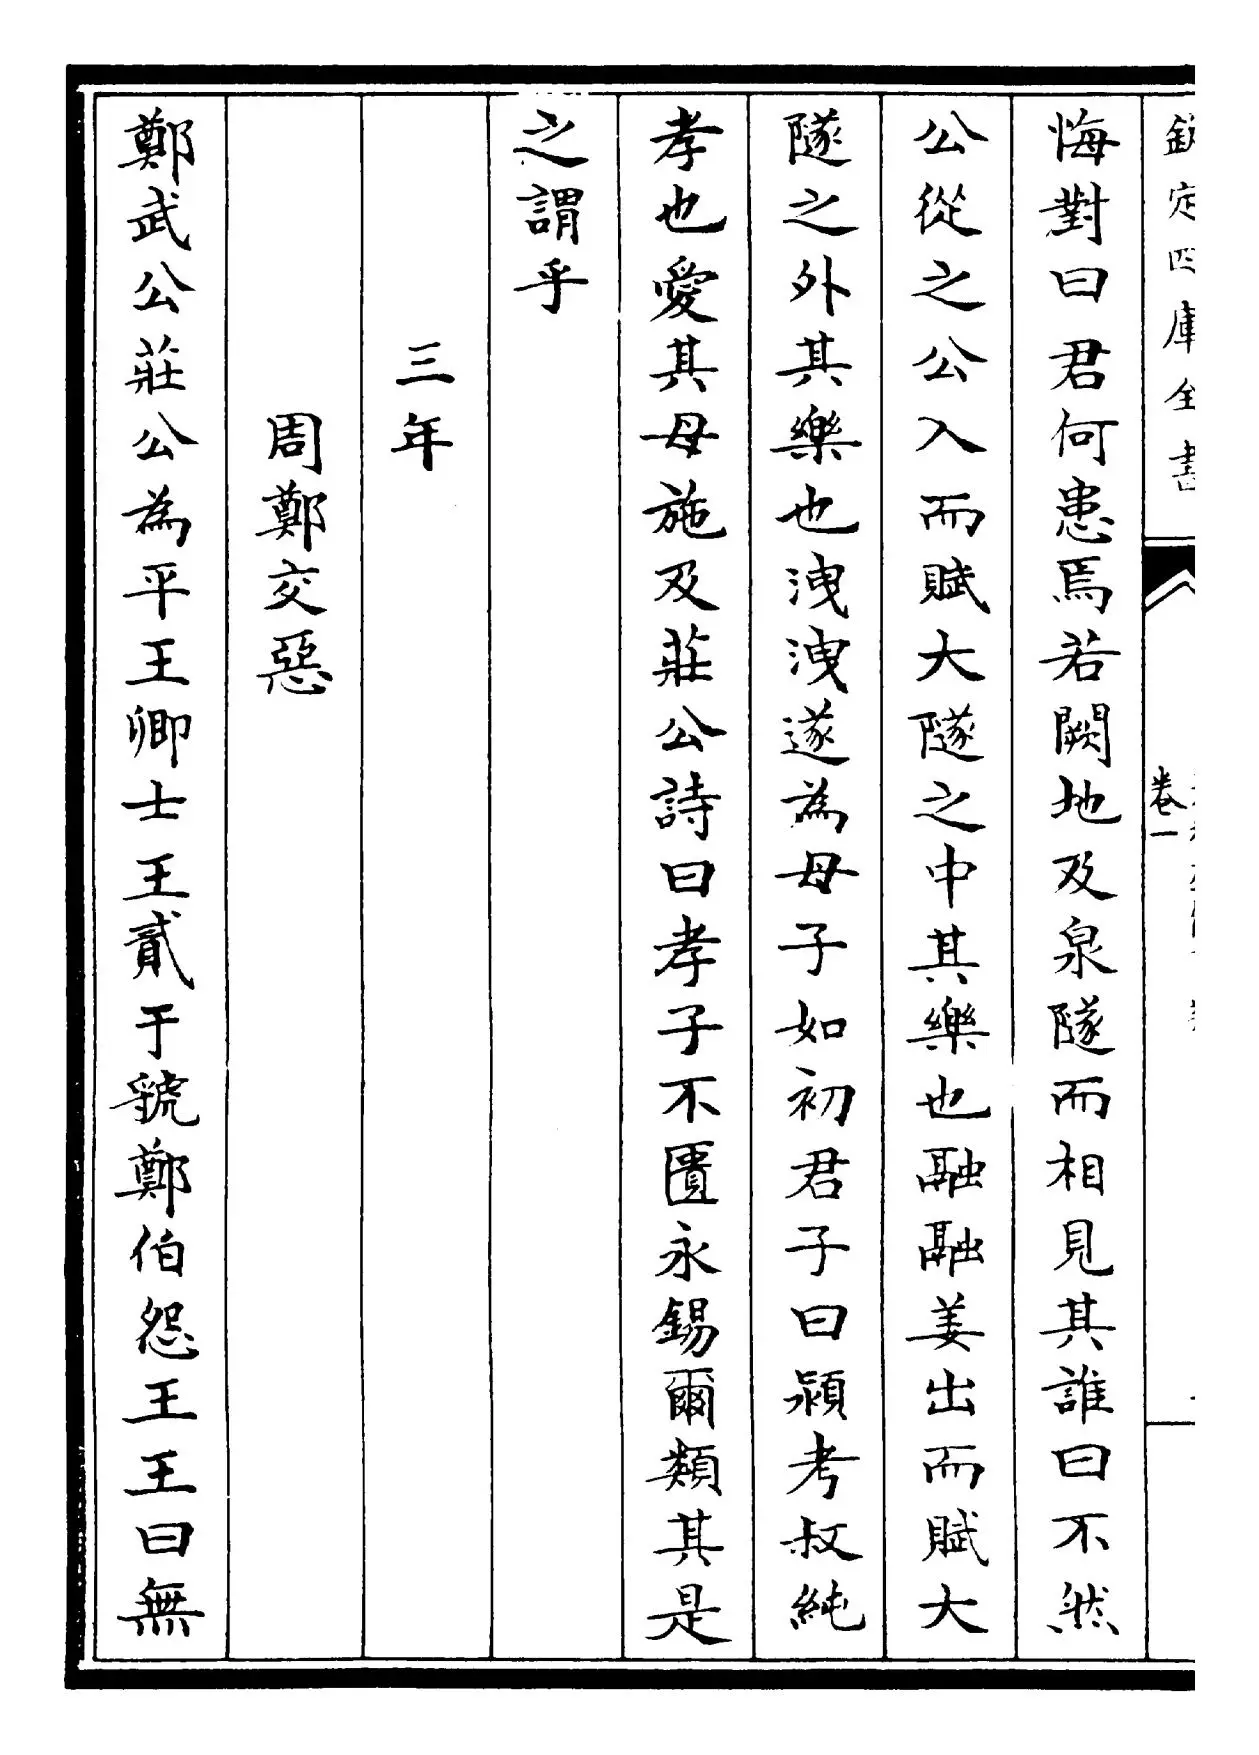 欽定四庫全書
卷一
悔對曰君何患焉若闕地及泉隧而相見其誰曰不然
公從之公入而賦大隧之中其樂也融融姜出而賦大
隧之外其樂也洩洩遂為母子如初君子曰潁考叔純
孝也愛其母施及莊公詩曰孝子不匱永錫爾類其是
之謂乎
三年
周鄭交惡
鄭武公莊公為平王卿士王貳于虢鄭伯怨王王曰無